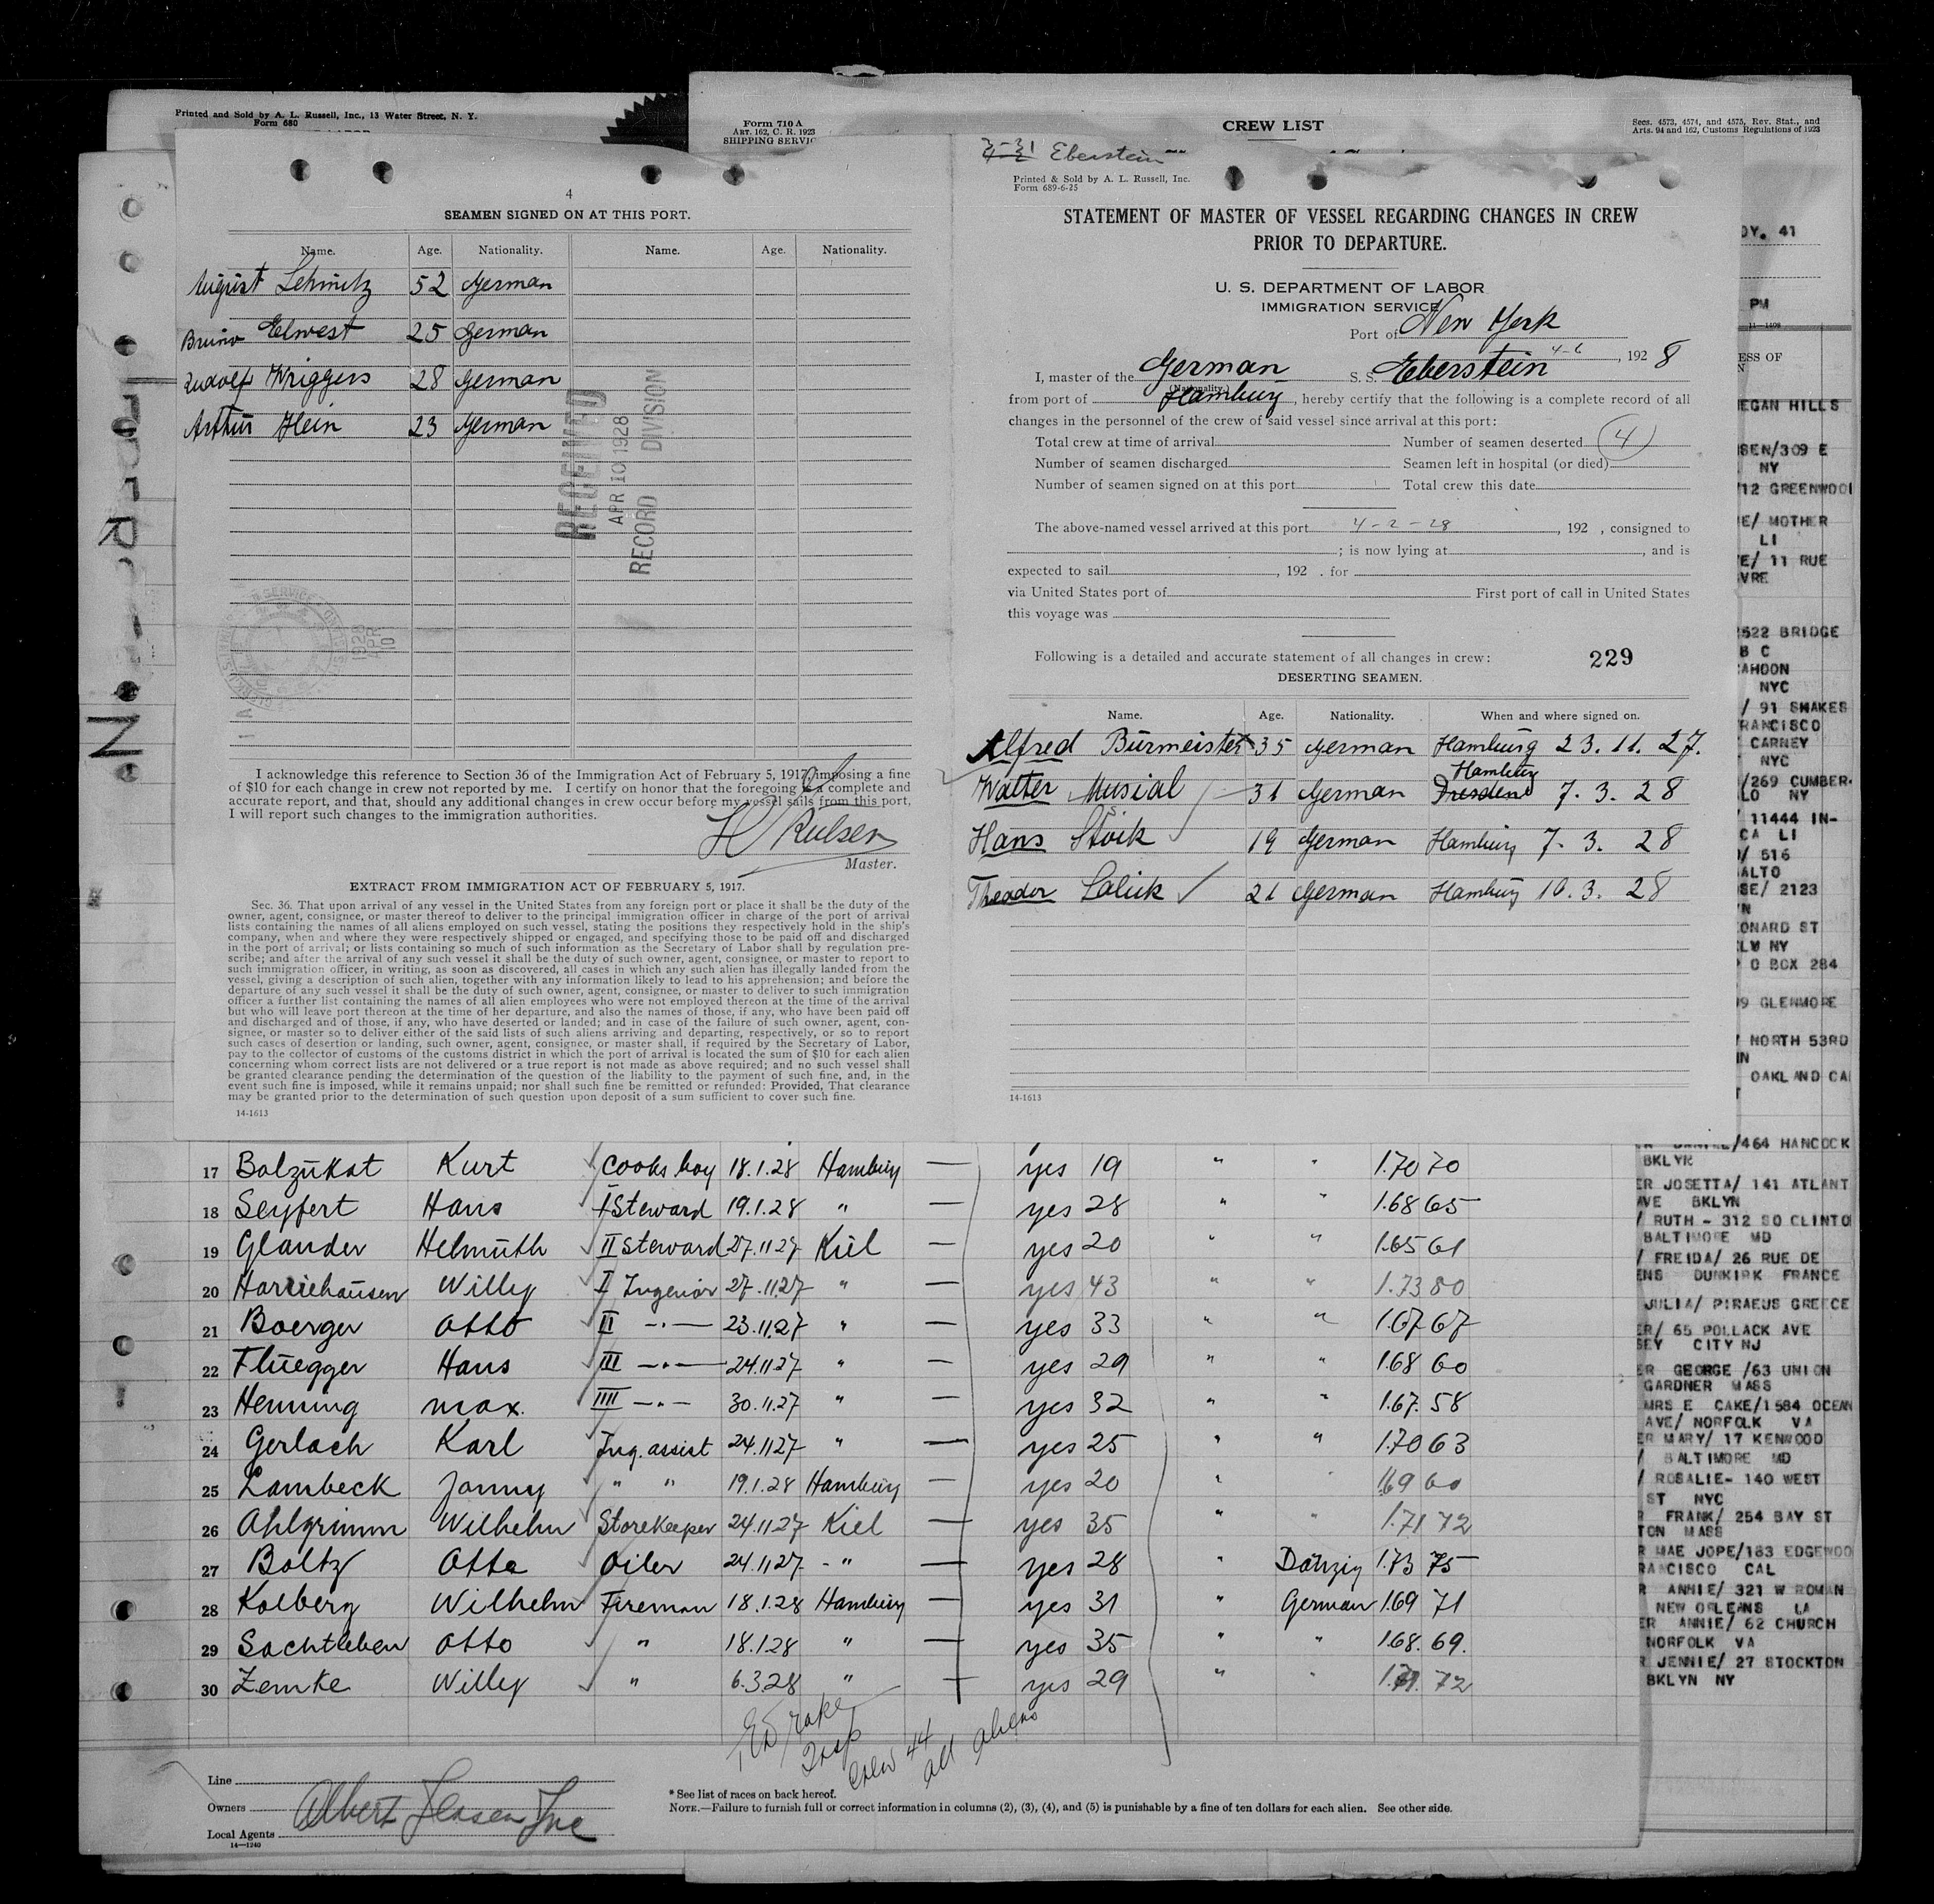 Printed and Sold by A. L. Russell, Inc., 13 Water Street, N. Y.
Form 680
Form 710 A
ART. 162, C. R. 1923
SHIPPING SERVIC
CREW LIST
Secs. 4573, 4574, and 4575, Rev. Stat., and
Arts. 94 and 162, Customs Regulations of 1923
4
SEAMEN SIGNED ON AT THIS PORT.
Name. Age. Nationality. Name. Age. Nationality.
August Schmitz 52 German
Bruno Elwest 25 German
Rudolf Wriggers 28 German
Arthur Hein 23 German
RECEIVED
APR 10 1928
RECORD DIVISION
1928
APR
10
I acknowledge this reference to Section 36 of the Immigration Act of February 5, 1917, imposing a fine
of $10 for each change in crew not reported by me. I certify on honor that the foregoing is a complete and
accurate report, and that, should any additional changes in crew occur before my vessel sails from this port,
I will report such changes to the immigration authorities.
Master.
EXTRACT FROM IMMIGRATION ACT OF FEBRUARY 5, 1917.
Sec. 36. That upon arrival of any vessel in the United States from any foreign port or place it shall be the duty of the
owner, agent, consignee, or master thereof to deliver to the principal immigration officer in charge of the port of arrival
lists containing the names of all aliens employed on such vessel, stating the positions they respectively hold in the ship's
company, when and where they were respectively shipped or engaged, and specifying those to be paid off and discharged
in the port of arrival; or lists containing so much of such information as the Secretary of Labor shall by regulation pre-
scribe; and after the arrival of any such vessel it shall be the duty of such owner, agent, consignee, or master to report to
such immigration officer, in writing, as soon as discovered, all cases in which any such alien has illegally landed from the
vessel, giving a description of such alien, together with any information likely to lead to his apprehension; and before the
departure of any such vessel it shall be the duty of such owner, agent, consignee, or master to deliver to such immigration
officer a further list containing the names of all alien employees who were not employed thereon at the time of the arrival
but who will leave port thereon at the time of her departure, and also the names of those, if any, who have been paid off
and discharged and of those, if any, who have deserted or landed; and in case of the failure of such owner, agent, con-
signee, or master so to deliver either of the said lists of such aliens arriving and departing, respectively, or so to report
such cases of desertion or landing, such owner, agent, consignee, or master shall, if required by the Secretary of Labor,
pay to the collector of customs of the customs district in which the port of arrival is located the sum of $10 for each alien
concerning whom correct lists are not delivered or a true report is not made as above required; and no such vessel shall
be granted clearance pending the determination of the question of the liability to the payment of such fine, and, in the
event such fine is imposed, while it remains unpaid; nor shall such fine be remitted or refunded: Provided, That clearance
may be granted prior to the determination of such question upon deposit of a sum sufficient to cover such fine.
14-1613
Eberstein
Printed & Sold by A. L. Russell, Inc.
Form 689-6-25
STATEMENT OF MASTER OF VESSEL REGARDING CHANGES IN CREW
PRIOR TO DEPARTURE.
U. S. DEPARTMENT OF LABOR
IMMIGRATION SERVICE
Port of New York
4-6, 1928
I, master of the German S. S. Eberstein
(Nationality.)
from port of Hamburg, hereby certify that the following is a complete record of all
changes in the personnel of the crew of said vessel since arrival at this port:
Total crew at time of arrival Number of seamen deserted 4
Number of seamen discharged Seamen left in hospital (or died)
Number of seamen signed on at this port Total crew this date
The above-named vessel arrived at this port 4-2-28, 192 , consigned to
; is now lying at , and is
expected to sail , 192 . for
via United States port of First port of call in United States
this voyage was
Following is a detailed and accurate statement of all changes in crew: 229
DESERTING SEAMEN.
Name. Age. Nationality. When and where signed on.
Alfred Bürmeister 35 German Hamburg 23.11.27.
Hamburg
Walter Musial 31 German Dresden 7.3.28
Hans Stöik 19 German Hamburg 7.3.28
Theodor Lalick 21 German Hamburg 10.3.28
14-1613
17 Balzukat Kurt cooks boy 18.1.28 Hamburg — yes 19 " " 1.70 70
18 Seyfert Hans I Steward 19.1.28 " — yes 28 " " 1.68 65
19 Glander Helmuth II Steward 27.11.27 Kiel — yes 20 " " 1.65 61
20 Harriehausen Willy I Ingenior 27.11.27 " — yes 43 " " 1.73 80
21 Boerger Otto II -"- 23.11.27 " — yes 33 " " 1.67 67
22 Fluegger Hans III -"- 24.11.27 " — yes 29 " " 1.68 60
23 Henning max. IIII -"- 30.11.27 " — yes 32 " " 1.67. 58
24 Gerlach Karl Ing. assist 24.11.27 " — yes 25 " " 1.70 63
25 Lambeck Jonny " " 19.1.28 Hamburg — yes 20 " " 1.69 60
26 Ahlgrimm Wilhelm Storekeeper 24.11.27 Kiel — yes 35 " " 1.71 72
27 Boltz Otto Oiler 24.11.27 -"- — yes 28 " Danzig 1.73 75
28 Kolberg Wilhelm Fireman 18.1.28 Hamburg — yes 31 " German 1.69 71
29 Sachtleben Otto " 18.1.28 " — yes 35 " " 1.68. 69.
30 Zemke Willy " 6.3.28 " — yes 29 " " 72
Drake
Insp
Crew 44
all aliens
Line
Owners
Local Agents Albert Jensen Inc
14—1240
*See list of races on back hereof.
NOTE.—Failure to furnish full or correct information in columns (2), (3), (4), and (5) is punishable by a fine of ten dollars for each alien. See other side.
OY. 41
PM
11-1498
ESS OF
EGAN HILLS
SEN/309 E
NY
/12 GREENWOO
E/ MOTHER
LI
E/ 11 RUE
VRE
522 BRIDGE
B C
AHOON
NYC
/ 91 SHAKES
RANCISCO
CARNEY
NYC
/269 CUMBER-
LO NY
11444 IN-
CA LI
/ 516
ALTO
SE/ 2123
N
ONARD ST
LM NY
P O BOX 284
9 GLENMORE
/ NORTH 53RD
IN
OAKLAND CA
/464 HANCOCK
BKLYN
ER JOSETTA/ 141 ATLANT
AVE BKLYN
/ RUTH - 312 SO CLINTO
BALTIMORE MD
/ FREIDA/ 26 RUE DE
ENS DUNKIRK FRANCE
JULIA/ PIRAEUS GREECE
ER/ 65 POLLACK AVE
SEY CITY NJ
ER GEORGE /63 UNION
GARDNER MASS
MRS E CAKE/1584 OCEAN
AVE/ NORFOLK VA
ER MARY/ 17 KENWOOD
/ BALTIMORE MD
/ ROSALIE- 140 WEST
ST NYC
R FRANK/ 254 BAY ST
TON MASS
R MAE JOPE/183 EDGEWOO
RANCISCO CAL
R ANNIE/ 321 W ROMAN
NEW ORLEANS LA
ER ANNIE/ 62 CHURCH
NORFOLK VA
R JENNIE/ 27 STOCKTON
BKLYN NY